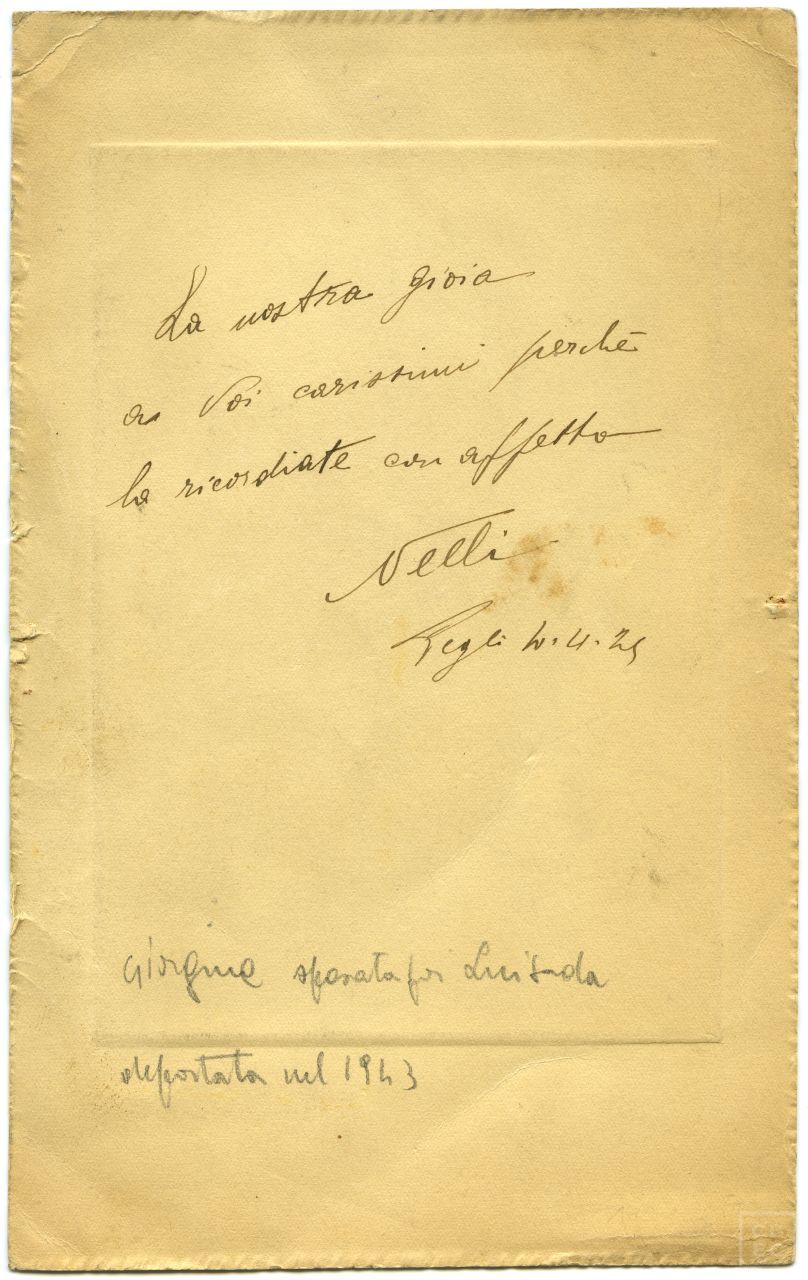 La nostra gioia
a Voi carissimi perchè
la ricordiate con affetto
Nelli
Pegli
Giorgina sposata poi Luisada
deportata nel 1943